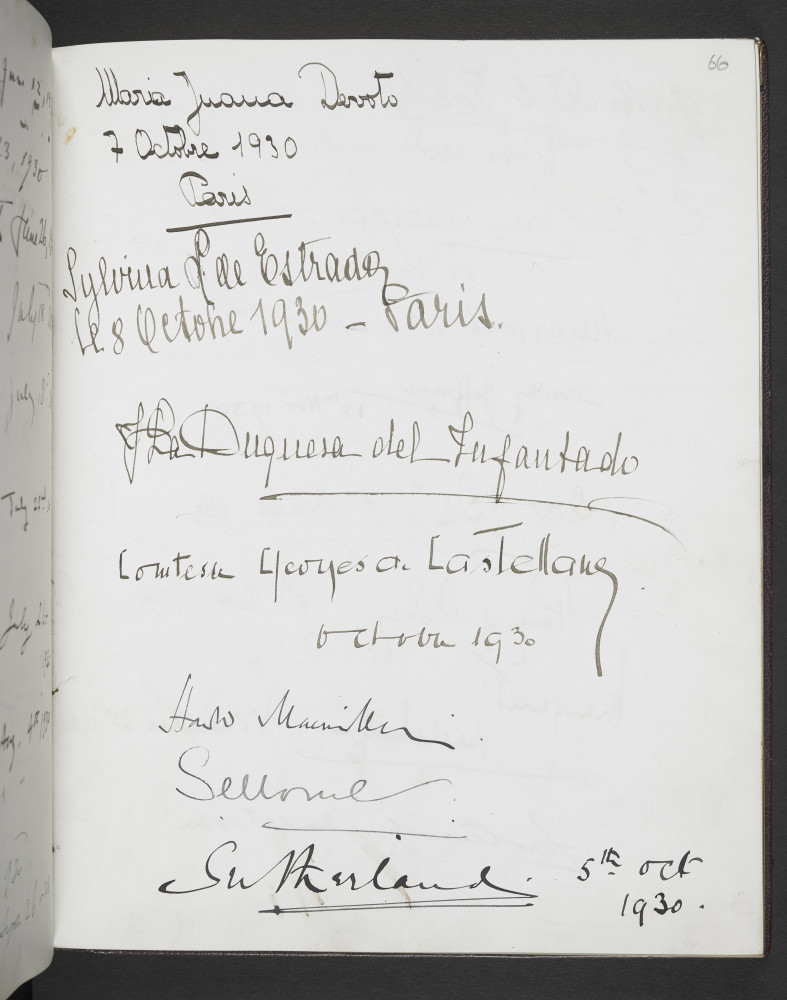 66
Maria Juana Devoto
7 Octobre 1930
Paris
Sylvina L. de Estrada
Le 8 Octobre 1930 – Paris.
La Duquesa del Infantado
Comtesse Georges de Castellane
octobre 1930
Harold Macmillan
Selborne
Sutherland. 5th Oct
1930.
June 12
23, 1930
June 26
July 18
July
July 21st
July 26
Aug. 4th 1930